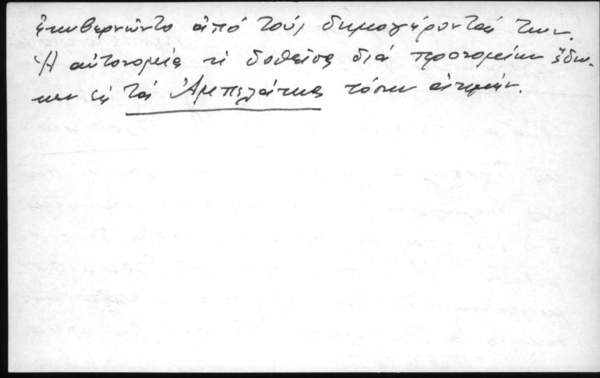 ἐκυβερνῶντο ἀπό τούς δημογέροντάς των.
Ἡ αὐτονομία ἡ δοθεῖσα διά προνομίων ἔδω-
κεν εἰς τά Ἀμπελάκια τόσην